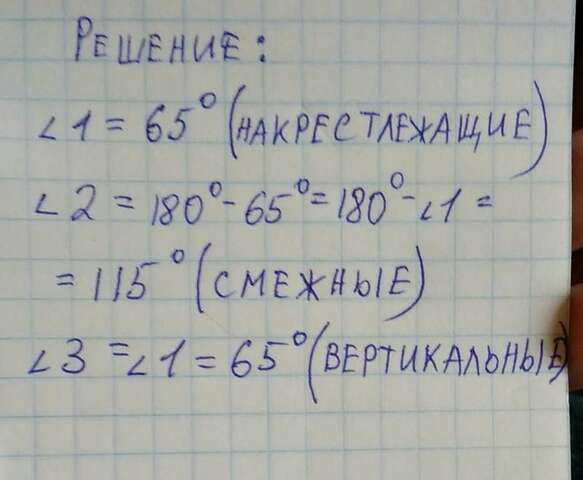 РЕШЕНИЕ:
∠1 = 65° (НАКРЕСТЛЕЖАЩИЕ)
∠2 = 180° - 65° = 180° - ∠1 =
= 115° (СМЕЖНЫЕ)
∠3 = ∠1 = 65° (ВЕРТИКАЛЬНЫЕ)